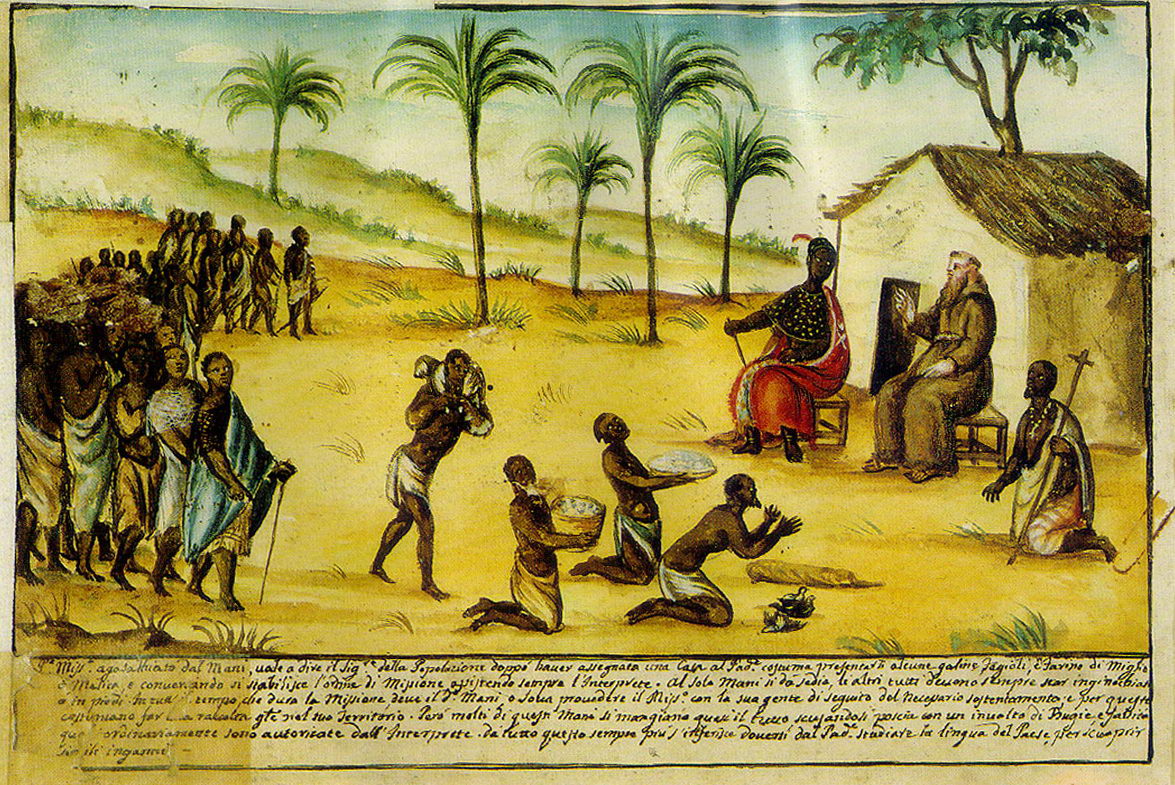 Miss.e agasalhiato dal Mani, vale a dire il Sig.re della Popolazione doppò haver assegnata una Casa al Pad.e costuma presentarli alcune galine Fagioli, e Farina di Miglio
ò Malica, e conversando si stabilisce l'ordine di Missione assistendo sempre l'Interprete. Al solo Mani si da Sedia, li altri tutti devono sempre star inginochiati
ò in piedi. In tutto il tempo che dura la Missione deve il d.o Mani, o Sova provedere il Miss.e con la sua gente di seguito del necesario sostentamento, e per questo
costumano far la racolta nel suo Territorio. Però molti di questi Mani si mangiano quasi il tutto scusandosi poscia con un involto di Bugie, e falsità
que ordinariamente sono autoricate dall'Interprete. da tutto questo sempre più s'inferisce doversi dal Pad.e studiare la lingua del Paese, per scuoprir
simili inganni –